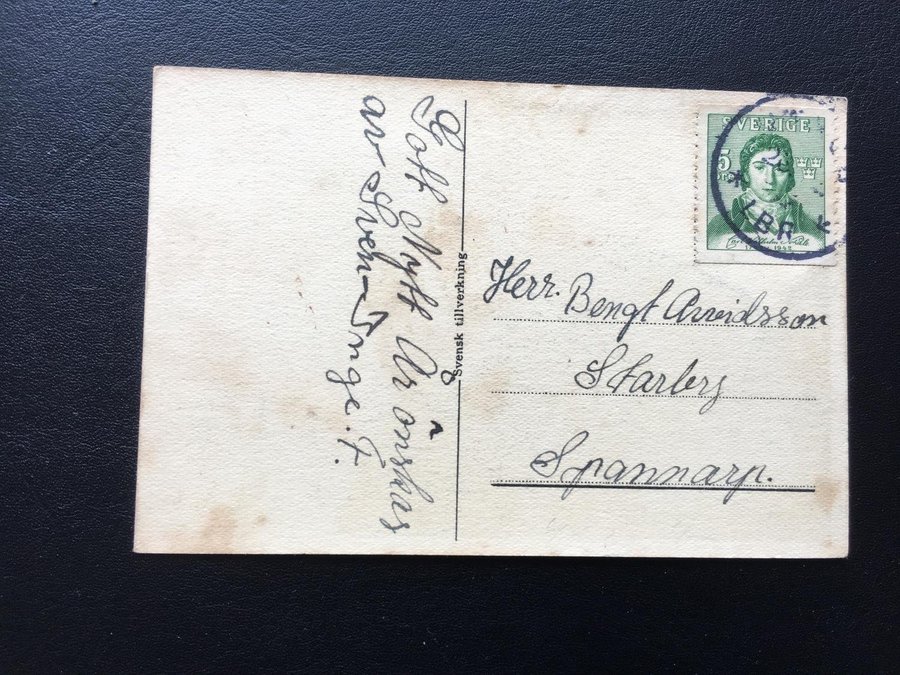 Gott Nytt År önskas
av Sven-Inge. F.
Svensk tillverkning
SVERIGE
5
1942
LBR
Herr. Bengt Arvidsson
Starberg
Spannarp.